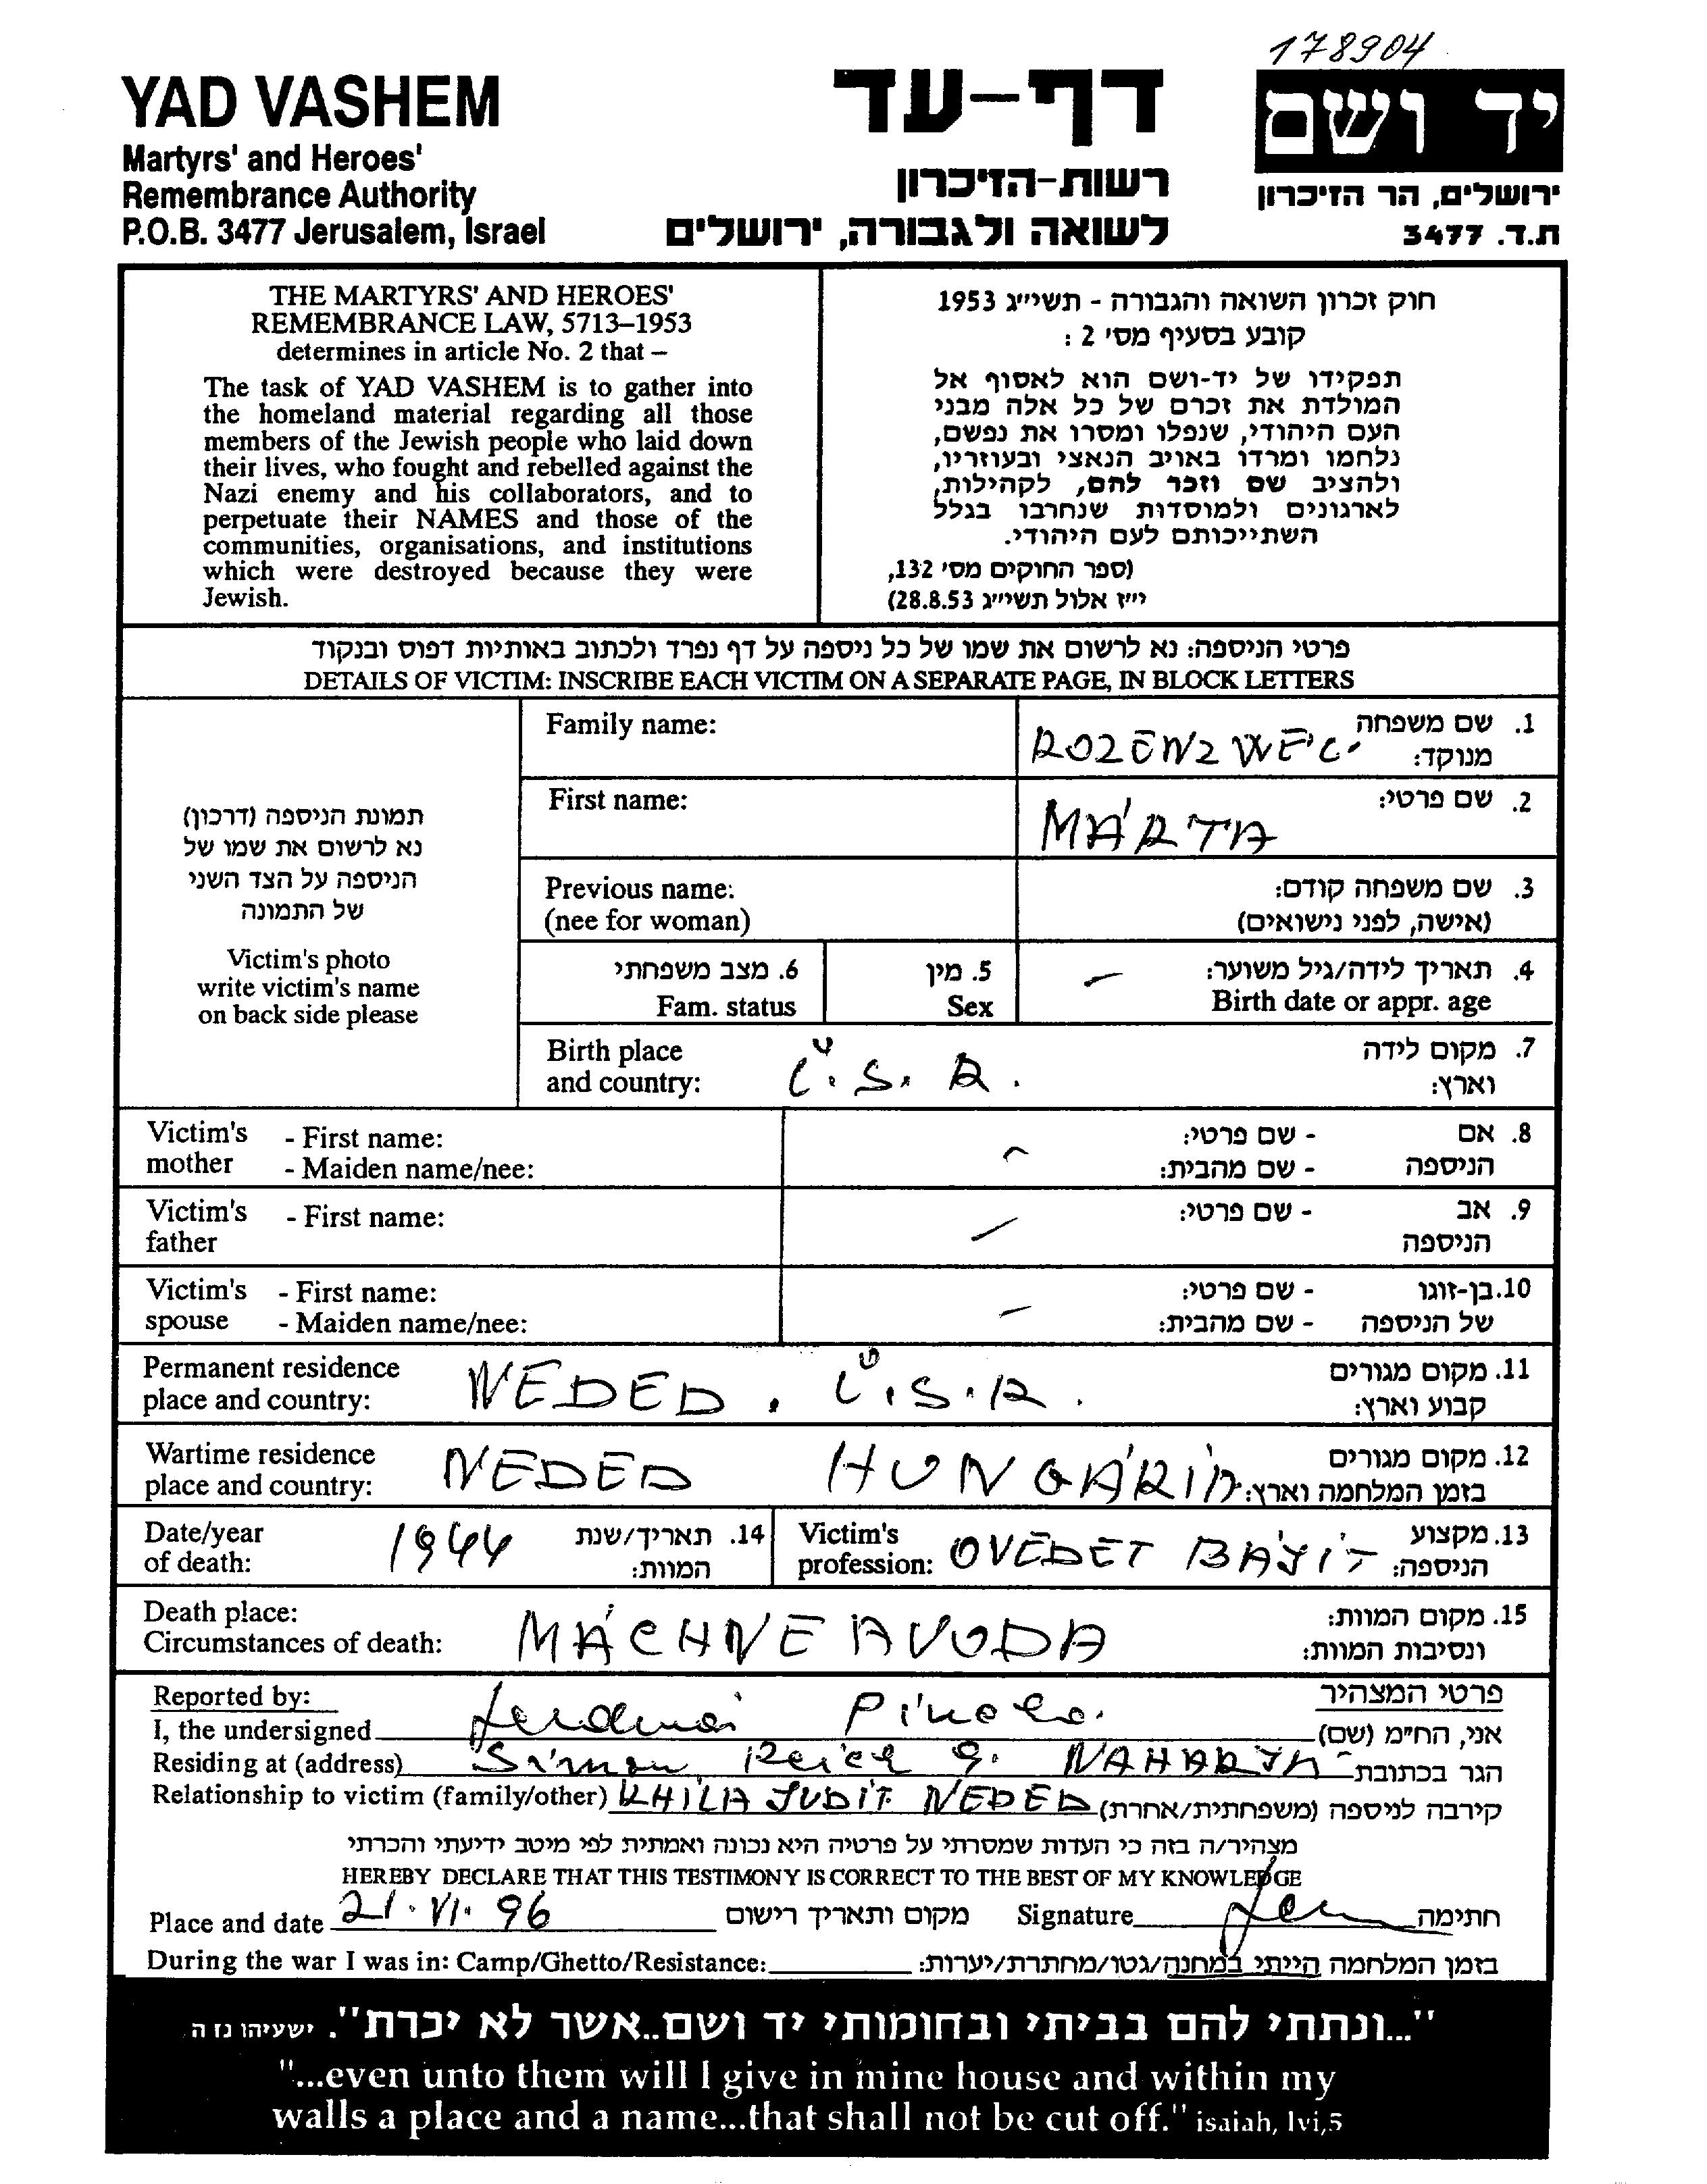 178904
YAD VASHEM
Martyrs' and Heroes'
Remembrance Authority
P.O.B. 3477 Jerusalem, Israel
דף-עד
רשות-הזיכרון
לשואה ולגבורה, ירושלים
יד ושם
ירושלים, הר הזיכרון
ת.ד. 3477
THE MARTYRS' AND HEROES'
REMEMBRANCE LAW, 5713–1953
determines in article No. 2 that –
The task of YAD VASHEM is to gather into
the homeland material regarding all those
members of the Jewish people who laid down
their lives, who fought and rebelled against the
Nazi enemy and his collaborators, and to
perpetuate their NAMES and those of the
communities, organisations, and institutions
which were destroyed because they were
Jewish.
חוק זכרון השואה והגבורה - תשי״ג 1953
קובע בסעיף מס׳ 2 :
תפקידו של יד-ושם הוא לאסוף אל
המולדת את זכרם של כל אלה מבני
העם היהודי, שנפלו ומסרו את נפשם,
נלחמו ומרדו באויב הנאצי ובעוזריו,
ולהציב שם וזכר להם, לקהילות,
לארגונים ולמוסדות שנחרבו בגלל
השתייכותם לעם היהודי.
(ספר החוקים מס׳ 132,
י״ז אלול תשי״ג 28.8.53)
פרטי הניספה: נא לרשום את שמו של כל ניספה על דף נפרד ולכתוב באותיות דפוס ובנקוד
DETAILS OF VICTIM: INSCRIBE EACH VICTIM ON A SEPARATE PAGE, IN BLOCK LETTERS
תמונת הניספה (דרכון)
נא לרשום את שמו של
הניספה על הצד השני
של התמונה
Victim's photo
write victim's name
on back side please
Family name: 1. שם משפחה
מנוקד:
First name: MÁRTA 2. שם פרטי:
Previous name: 3. שם משפחה קודם:
(nee for woman) (אישה, לפני נישואים)
6. מצב משפחתי 5. מין 4. תאריך לידה/גיל משוער:
Fam. status Sex – Birth date or appr. age
Birth place 7. מקום לידה
and country: Č. S. R. וארץ:
Victim's - First name: - שם פרטי: 8. אם
mother - Maiden name/nee: - שם מהבית: הניספה
Victim's - First name: - שם פרטי: 9. אב
father הניספה
Victim's - First name: - שם פרטי: 10. בן-זוגו
spouse - Maiden name/nee: - שם מהבית: של הניספה
Permanent residence 11. מקום מגורים
place and country: NEDED. Č.S.R. קבוע וארץ:
Wartime residence 12. מקום מגורים
place and country: NEDED HUNGÁRIA בזמן המלחמה וארץ:
Date/year 1944 14. תאריך/שנת Victim's 13. מקצוע
of death: המוות: profession: OVÉDET BÁJIT הניספה:
Death place: 15. מקום המוות:
Circumstances of death: MÁCHNE AVODA ונסיבות המוות:
Reported by: פרטי המצהיר
I, the undersigned אני, הח״מ (שם)
Residing at (address) Simon Reich 9. NAHARJA הגר בכתובת
Relationship to victim (family/other) KHILA JUDIT NEDED קירבה לניספה (משפחתית/אחרת)
מצהיר/ה בזה כי העדות שמסרתי על פרטיה היא נכונה ואמתית לפי מיטב ידיעתי והכרתי
HEREBY DECLARE THAT THIS TESTIMONY IS CORRECT TO THE BEST OF MY KNOWLEDGE
Place and date 21. VI. 96 מקום ותאריך רישום Signature חתימה
During the war I was in: Camp/Ghetto/Resistance: בזמן המלחמה הייתי במחנה/גטו/מחתרת/יערות:
"...ונתתי להם בביתי ובחומותי יד ושם..אשר לא יכרת". ישעיהו נז ה
"...even unto them will I give in mine house and within my
walls a place and a name...that shall not be cut off." isaiah, lvi,5